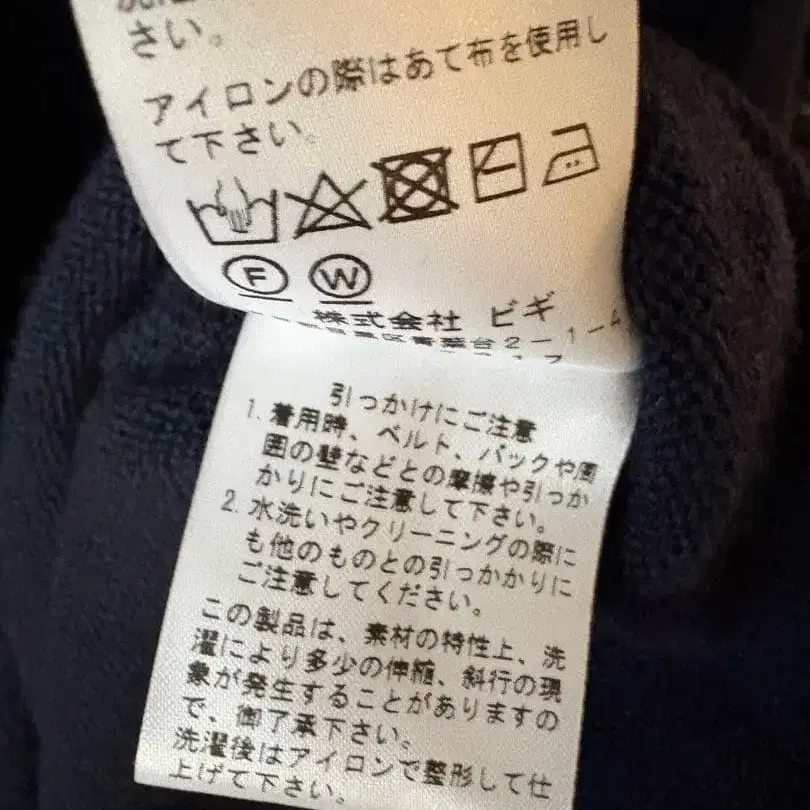 さい。
アイロンの際はあて布を使用し
て下さい。
F W
株式会社 ビギ
台2-1-
引っかけにご注意
1. 着用時、ベルト、バックや周
囲の壁などとの摩擦や引っか
かりにご注意して下さい。
2. 水洗いやクリーニングの際に
も他のものとの引っかかりに
ご注意してください。
この製品は、素材の特性上、洗
濯により多少の伸縮、斜行の現
象が発生することがありますの
で、御了承下さい。
洗濯後はアイロンで整形して仕
上げて下さい。